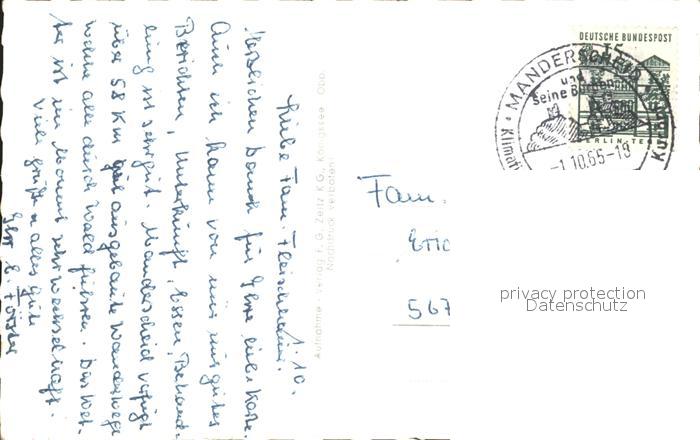 1.10.
Liebe Fam. Fleischhauer.
Herzlichen Dank für Ihre liebe Karte.
Auch ich kann von mir nur gutes
Berichten, Unterkunft, Essen, Behand-
lung ist sehr gut. Manderscheid verfügt
über 58 Km gut ausgebaute Wanderwege
welche alle durch Wald führen. Das Wet-
ter ist im Moment sehr wechselhaft.
Viele Grüße u alles gute
Ihr E. Förster
Aufnahme - Verlag F. G. Zeitz K.G., Königssee / Obb.
Nachdruck verboten
DEUTSCHE BUNDESPOST
15
MANDERSCHEID
und
seine Burgen
-1.10.65-18
Klimati
Kur
BERLIN-TE
Fam.
Eric
567
privacy protection
Datenschutz